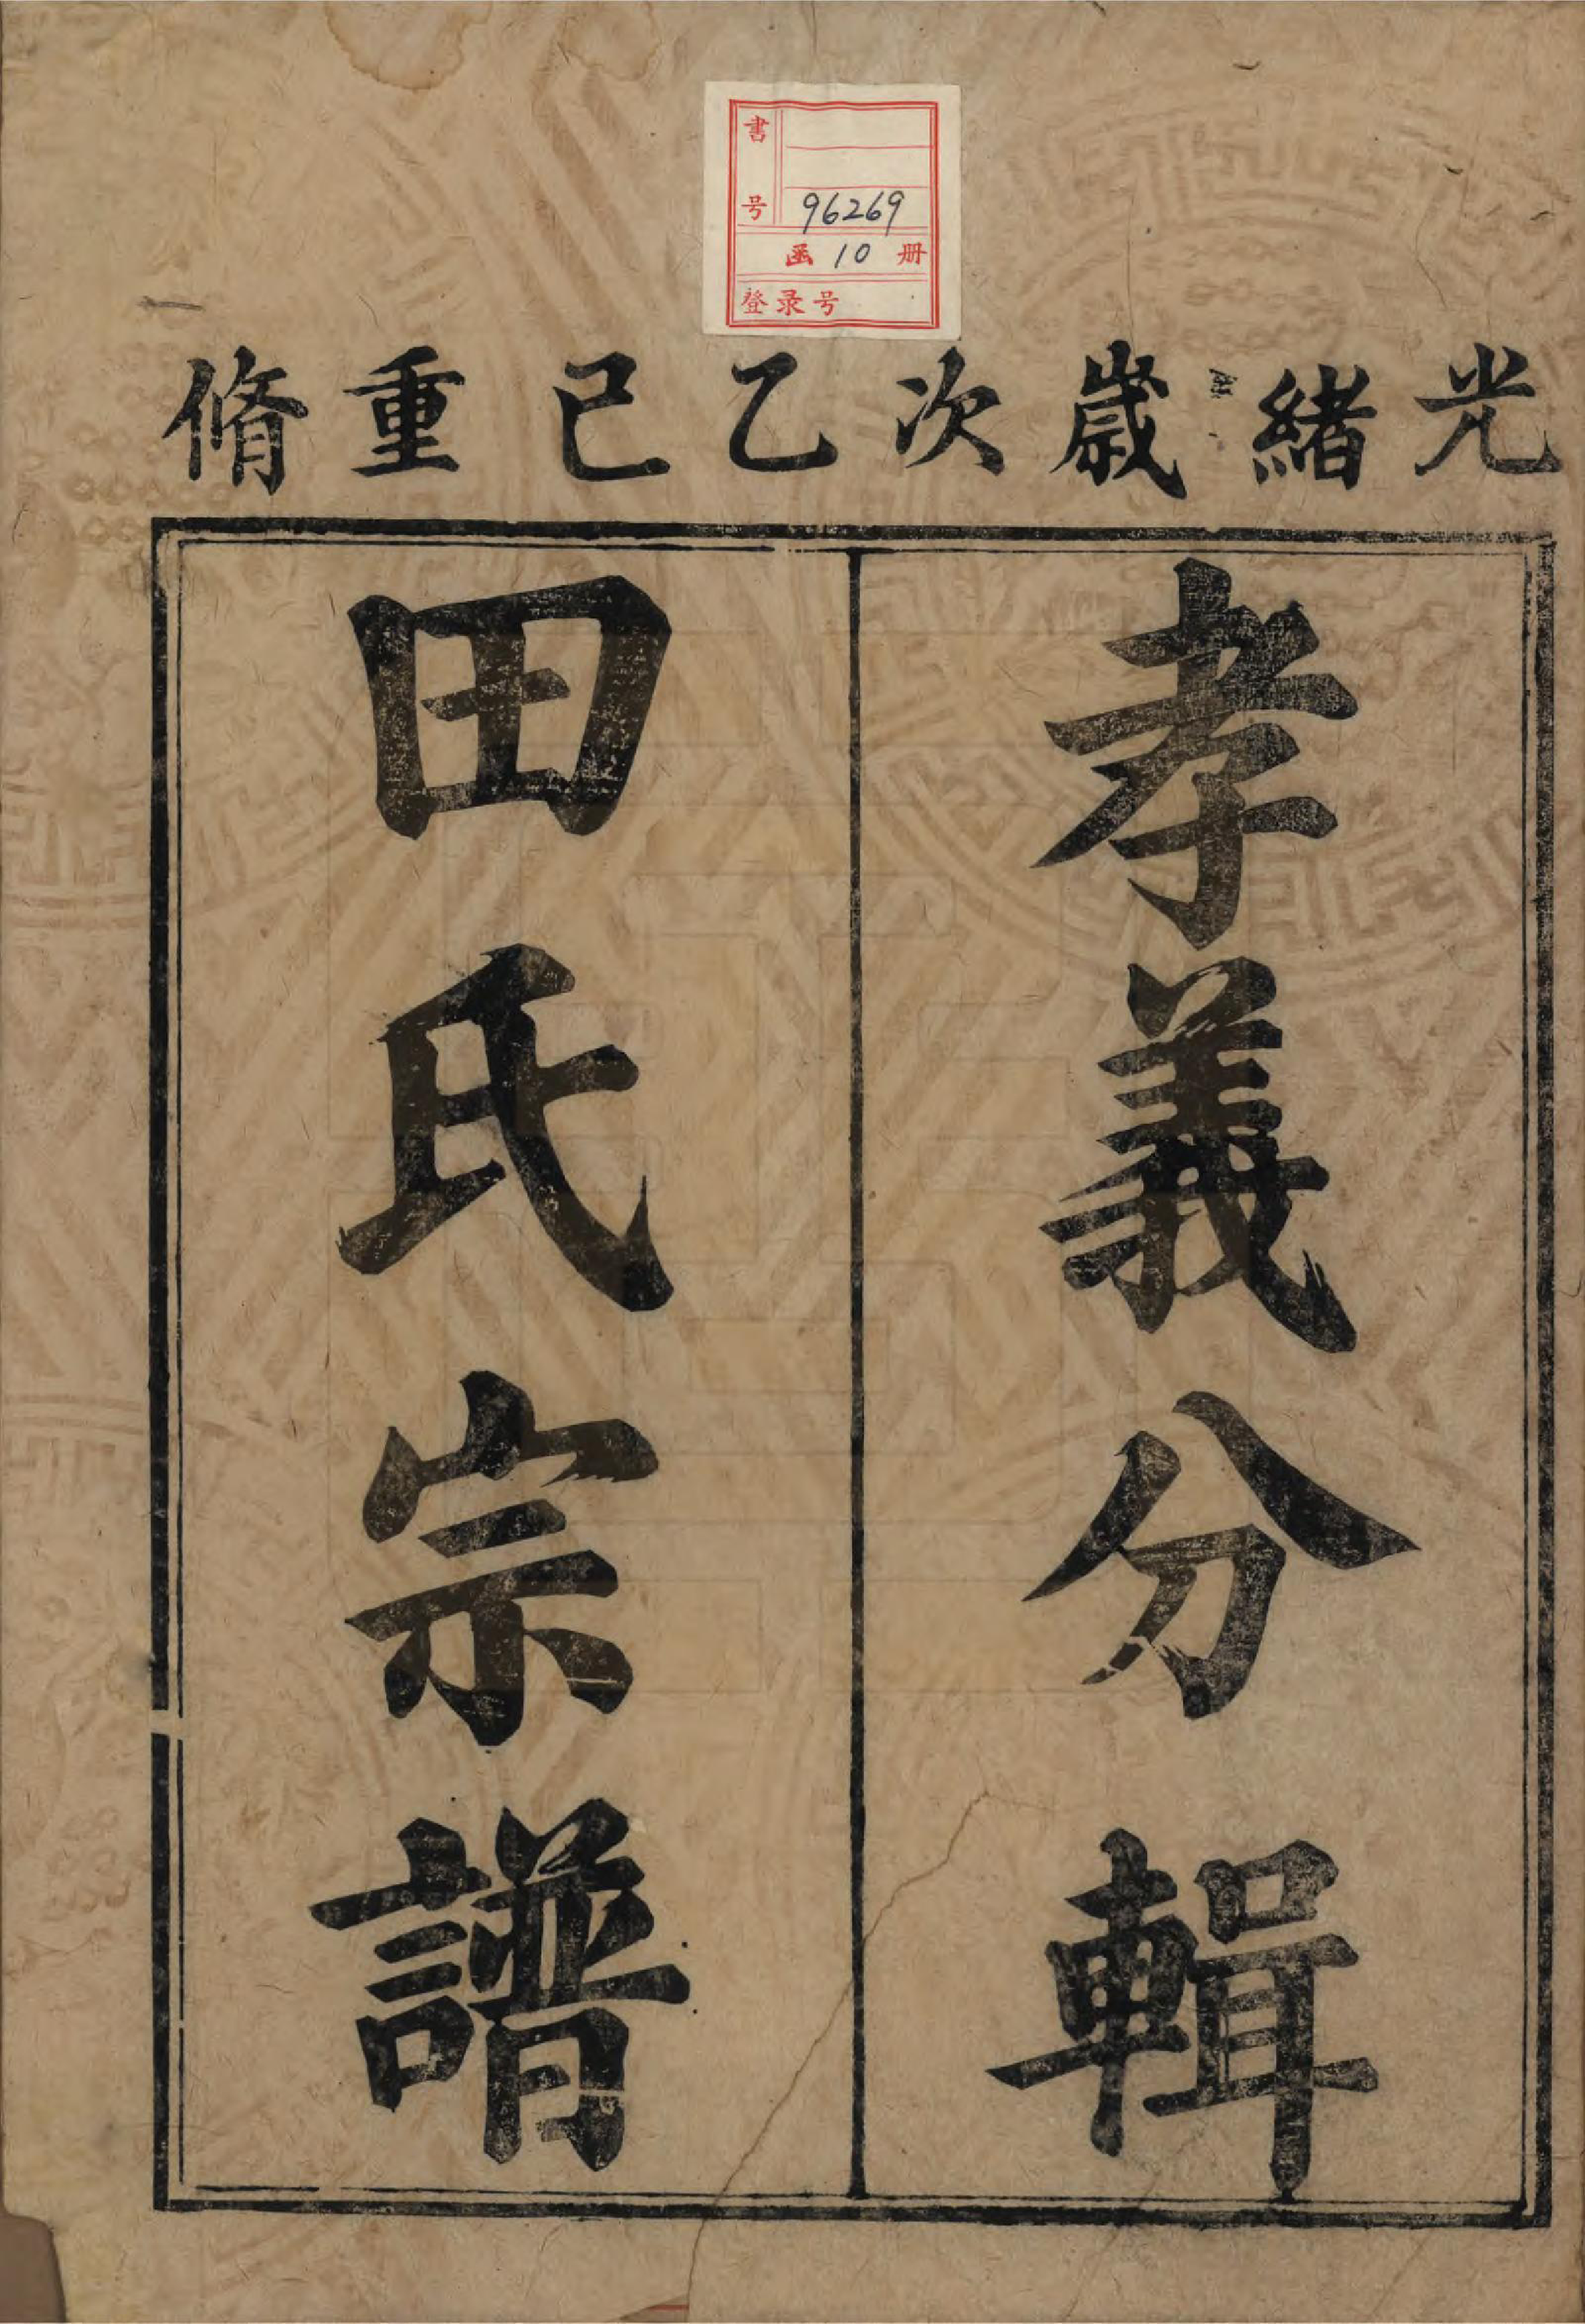 書号 96269
函 10 册
登录号
光緒歲次乙巳重脩
孝義分輯
田氏宗譜